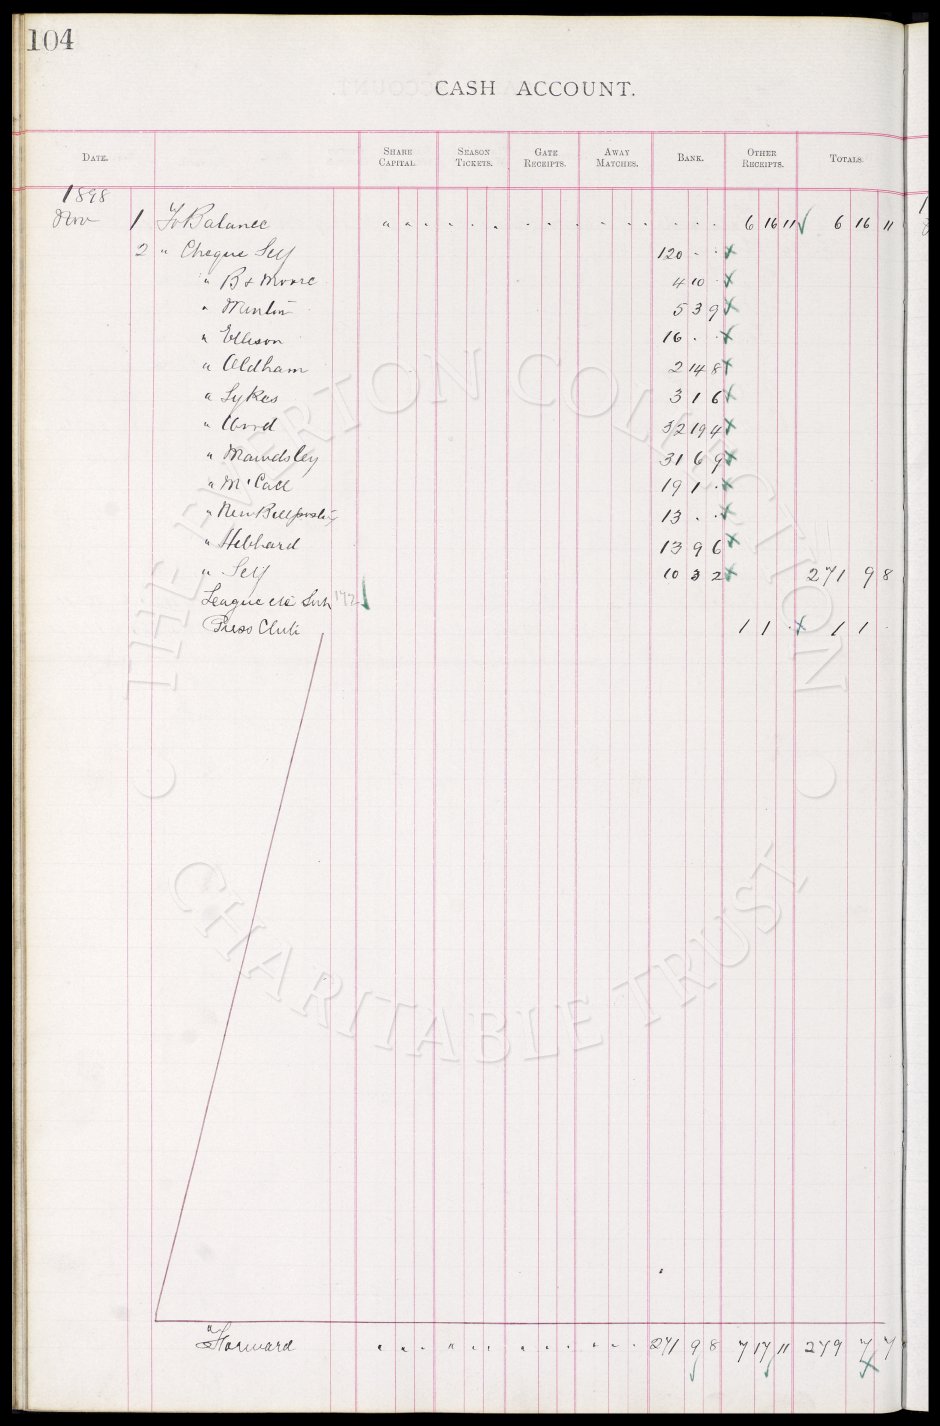 104
CASH ACCOUNT.
DATE. SHARE CAPITAL. SEASON TICKETS. GATE RECEIPTS. AWAY MATCHES. BANK. OTHER RECEIPTS. TOTALS.
1898
Nov 1 To Balance " " . . . . . . . . . . . . . . . 6 16 11 6 16 11
2 " Cheque Self 120 . .
" B & Moore 4 10 .
" 5 3 9
" Ellison 16 . .
" Oldham 2 14 8
" Sykes 3 1 6
" Wood 32 19 4
" Mawdsley 31 6 9
" McCall 19 1 .
" New Billposting 13 . .
" Hebbard 13 9 6
" Self 10 3 2 271 9 8
League etc Sub 172
Press Club 1 1 . 1 1 .
" Forward " . . " . . . . . . . . . 271 9 8 7 17 11 279 7 7
THE EVERTON COLLECTION
CHARITABLE TRUST